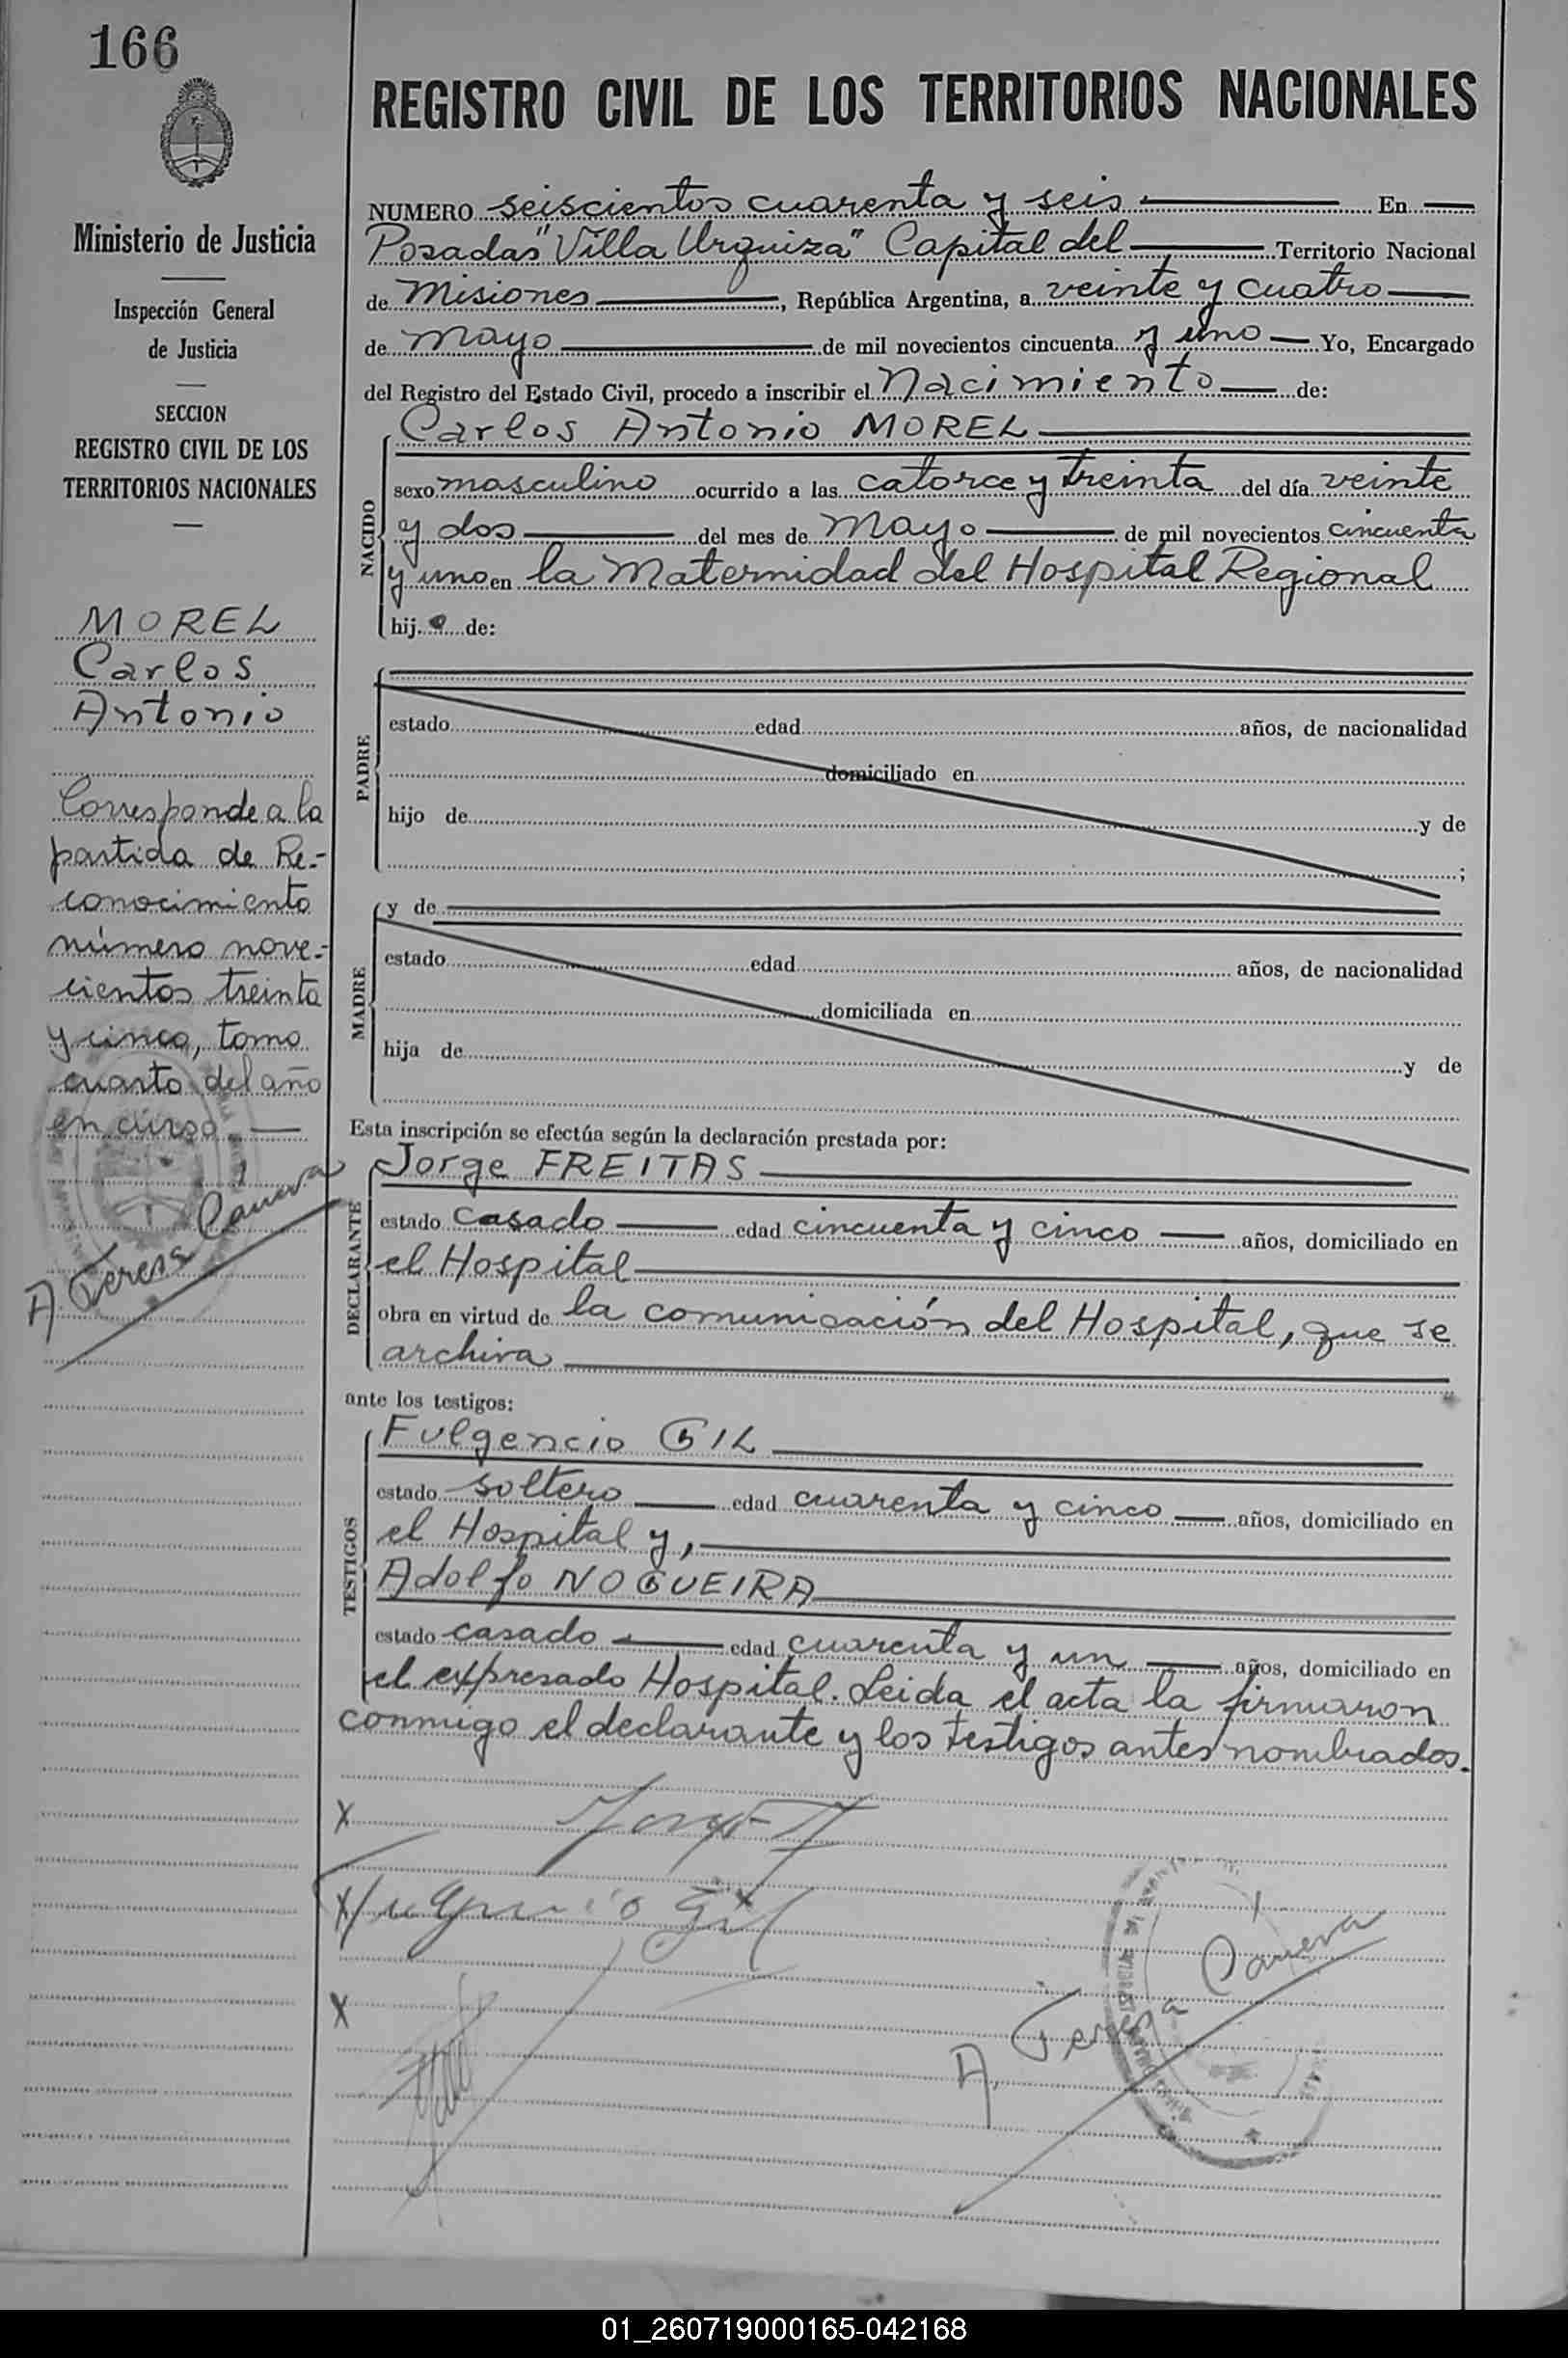 166
Ministerio de Justicia
Inspección General
de Justicia
SECCION
REGISTRO CIVIL DE LOS
TERRITORIOS NACIONALES
MOREL
Carlos
Antonio
Corresponde a la
partida de Re-
conocimiento
número nove-
cientos treinta
y cinco, tomo
cuarto del año
en curso.
A. Teresa Cáneva
REGISTRO CIVIL DE LOS TERRITORIOS NACIONALES
NUMERO seiscientos cuarenta y seis En
Posadas "Villa Urquiza" Capital del Territorio Nacional
de Misiones, República Argentina, a veinte y cuatro
de Mayo de mil novecientos cincuenta y uno Yo, Encargado
del Registro del Estado Civil, procedo a inscribir el Nacimiento de:
NACIDO
Carlos Antonio MOREL
sexo masculino ocurrido a las catorce y treinta del día veinte
y dos del mes de Mayo de mil novecientos cincuenta
y uno en la Maternidad del Hospital Regional
hijo de:
PADRE
estado edad años, de nacionalidad
domiciliado en
hijo de y de
;
MADRE
y de
estado edad años, de nacionalidad
domiciliada en
hija de y de
Esta inscripción se efectúa según la declaración prestada por:
DECLARANTE
Jorge FREITAS
estado casado edad cincuenta y cinco años, domiciliado en
el Hospital
obra en virtud de la comunicación del Hospital, que se
archiva
ante los testigos:
TESTIGOS
Fulgencio GIL
estado soltero edad cuarenta y cinco años, domiciliado en
el Hospital y,
Adolfo NOGUEIRA
estado casado edad cuarenta y un años, domiciliado en
el expresado Hospital. Leida el acta la firmaron
conmigo el declarante y los testigos antes nombrados.
x
x Fulgencio Gil
x
A. Teresa Cáneva
01_260719000165-042168